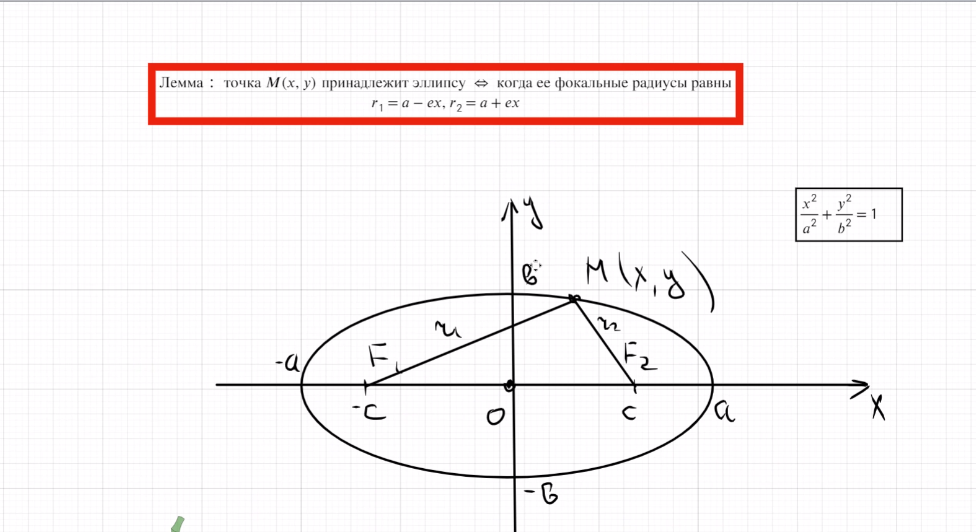 Лемма : точка M(x, y) принадлежит эллипсу ⇔ когда ее фокальные радиусы равны
r₁ = a − ex, r₂ = a + ex
x²/a² + y²/b² = 1
y
в
M(x, y)
r₁
r₂
-a
F₁
F₂
-c
O
c
a
x
-в